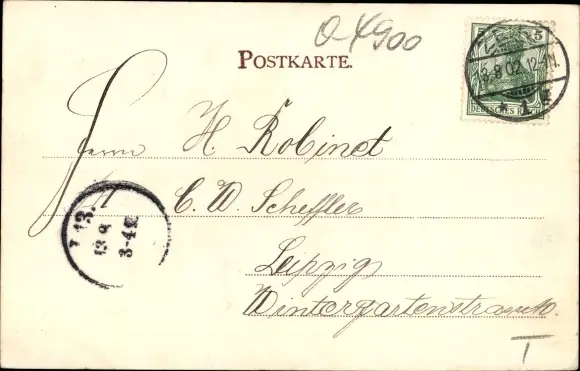 O-4900
POSTKARTE.
5 5
ZEITZ
8 02 12-1N.
* 1 e
DEUTSCHES REICH
Herrn H. Robinet
C. W. Scheffler
Leipzig
Wintergartenstrasse
13.
13 8
3-4
T